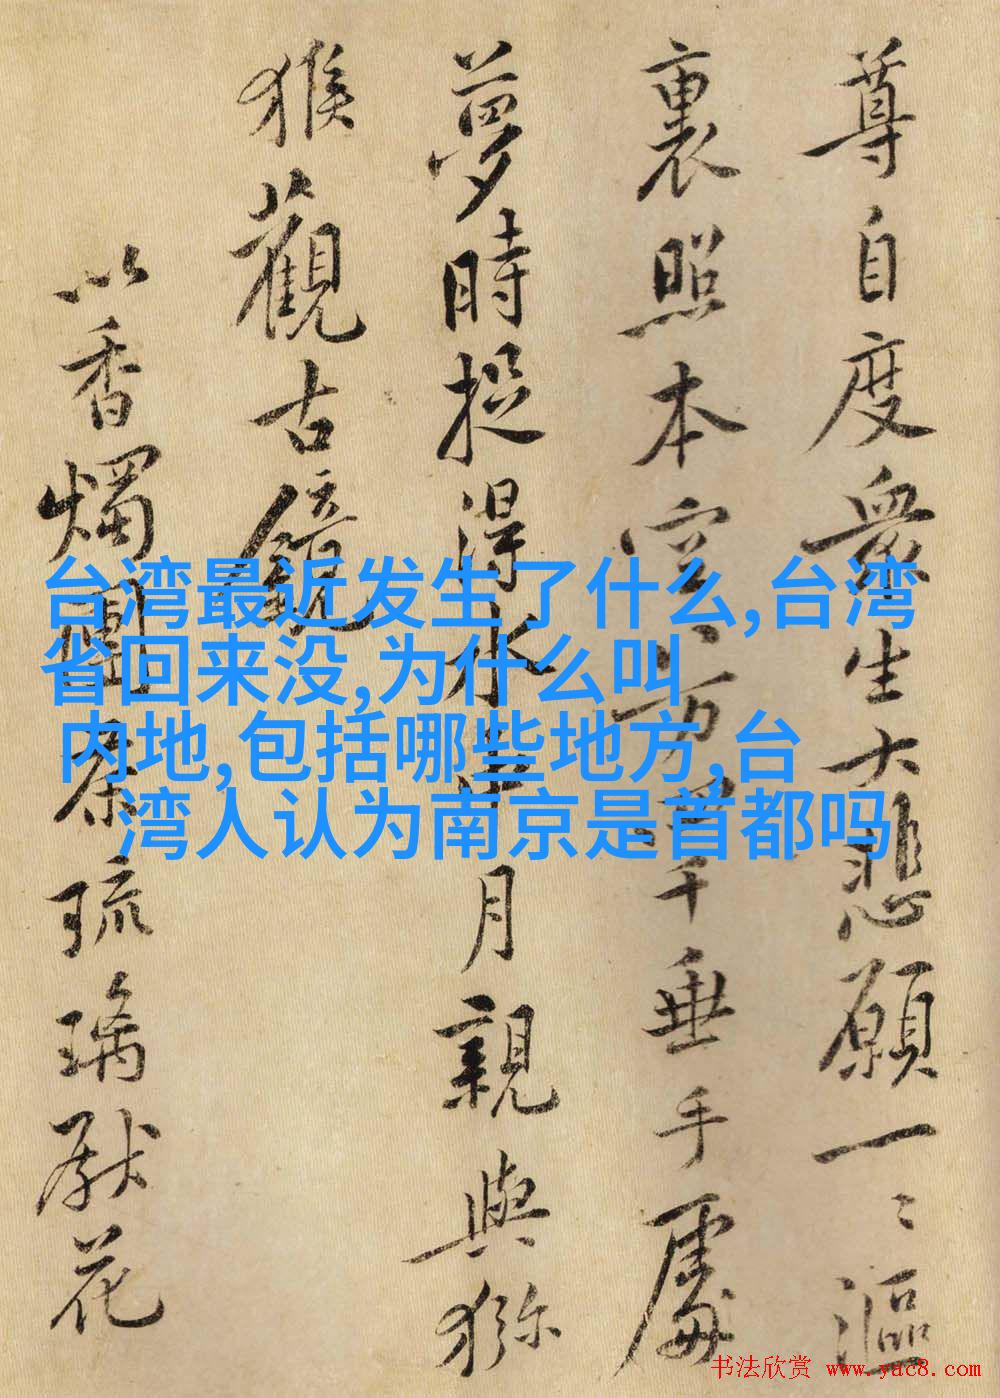 尊自度眾生大悲願一〻漚
裏照本空八万四千垂手處
夢時捉得水中月親與獼
猴觀古鏡
以香燭團茶琉璃献花
台湾最近发生了什么,台湾
省回来没,为什么叫
内地,包括哪些地方,台
湾人认为南京是首都吗
书法欣赏 www.yac8.com